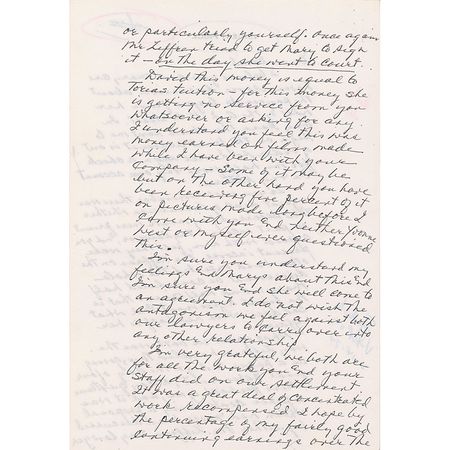 or particularly yourself. Once again
Mr Zeffren tried to get Mary to sign
it - on the day she went to Court.
David this money is equal to
Torias tuition - for this money she
is getting no service from you
whatsoever or asking for any.
I understand you feel this was
money earned on films made
while I have been with your
Company - Some of it may be
but on the other hand you have
been receiving five percent of it
on pictures made long before I
came with you End neither
West or myself ever questioned
this.
I'm sure you understand my
feelings End Marys about this End
I'm sure you End she will come to
an agreement. I do not wish the
antagonism we feel against both
our lawyers to carry over into
any other relationship
I'm very grateful, we both are
for all the work you End your
staff did on our settlement
It was a great deal of concentrated
work recompensed I hope by
the percentage of my fairly good
continuing earnings over the